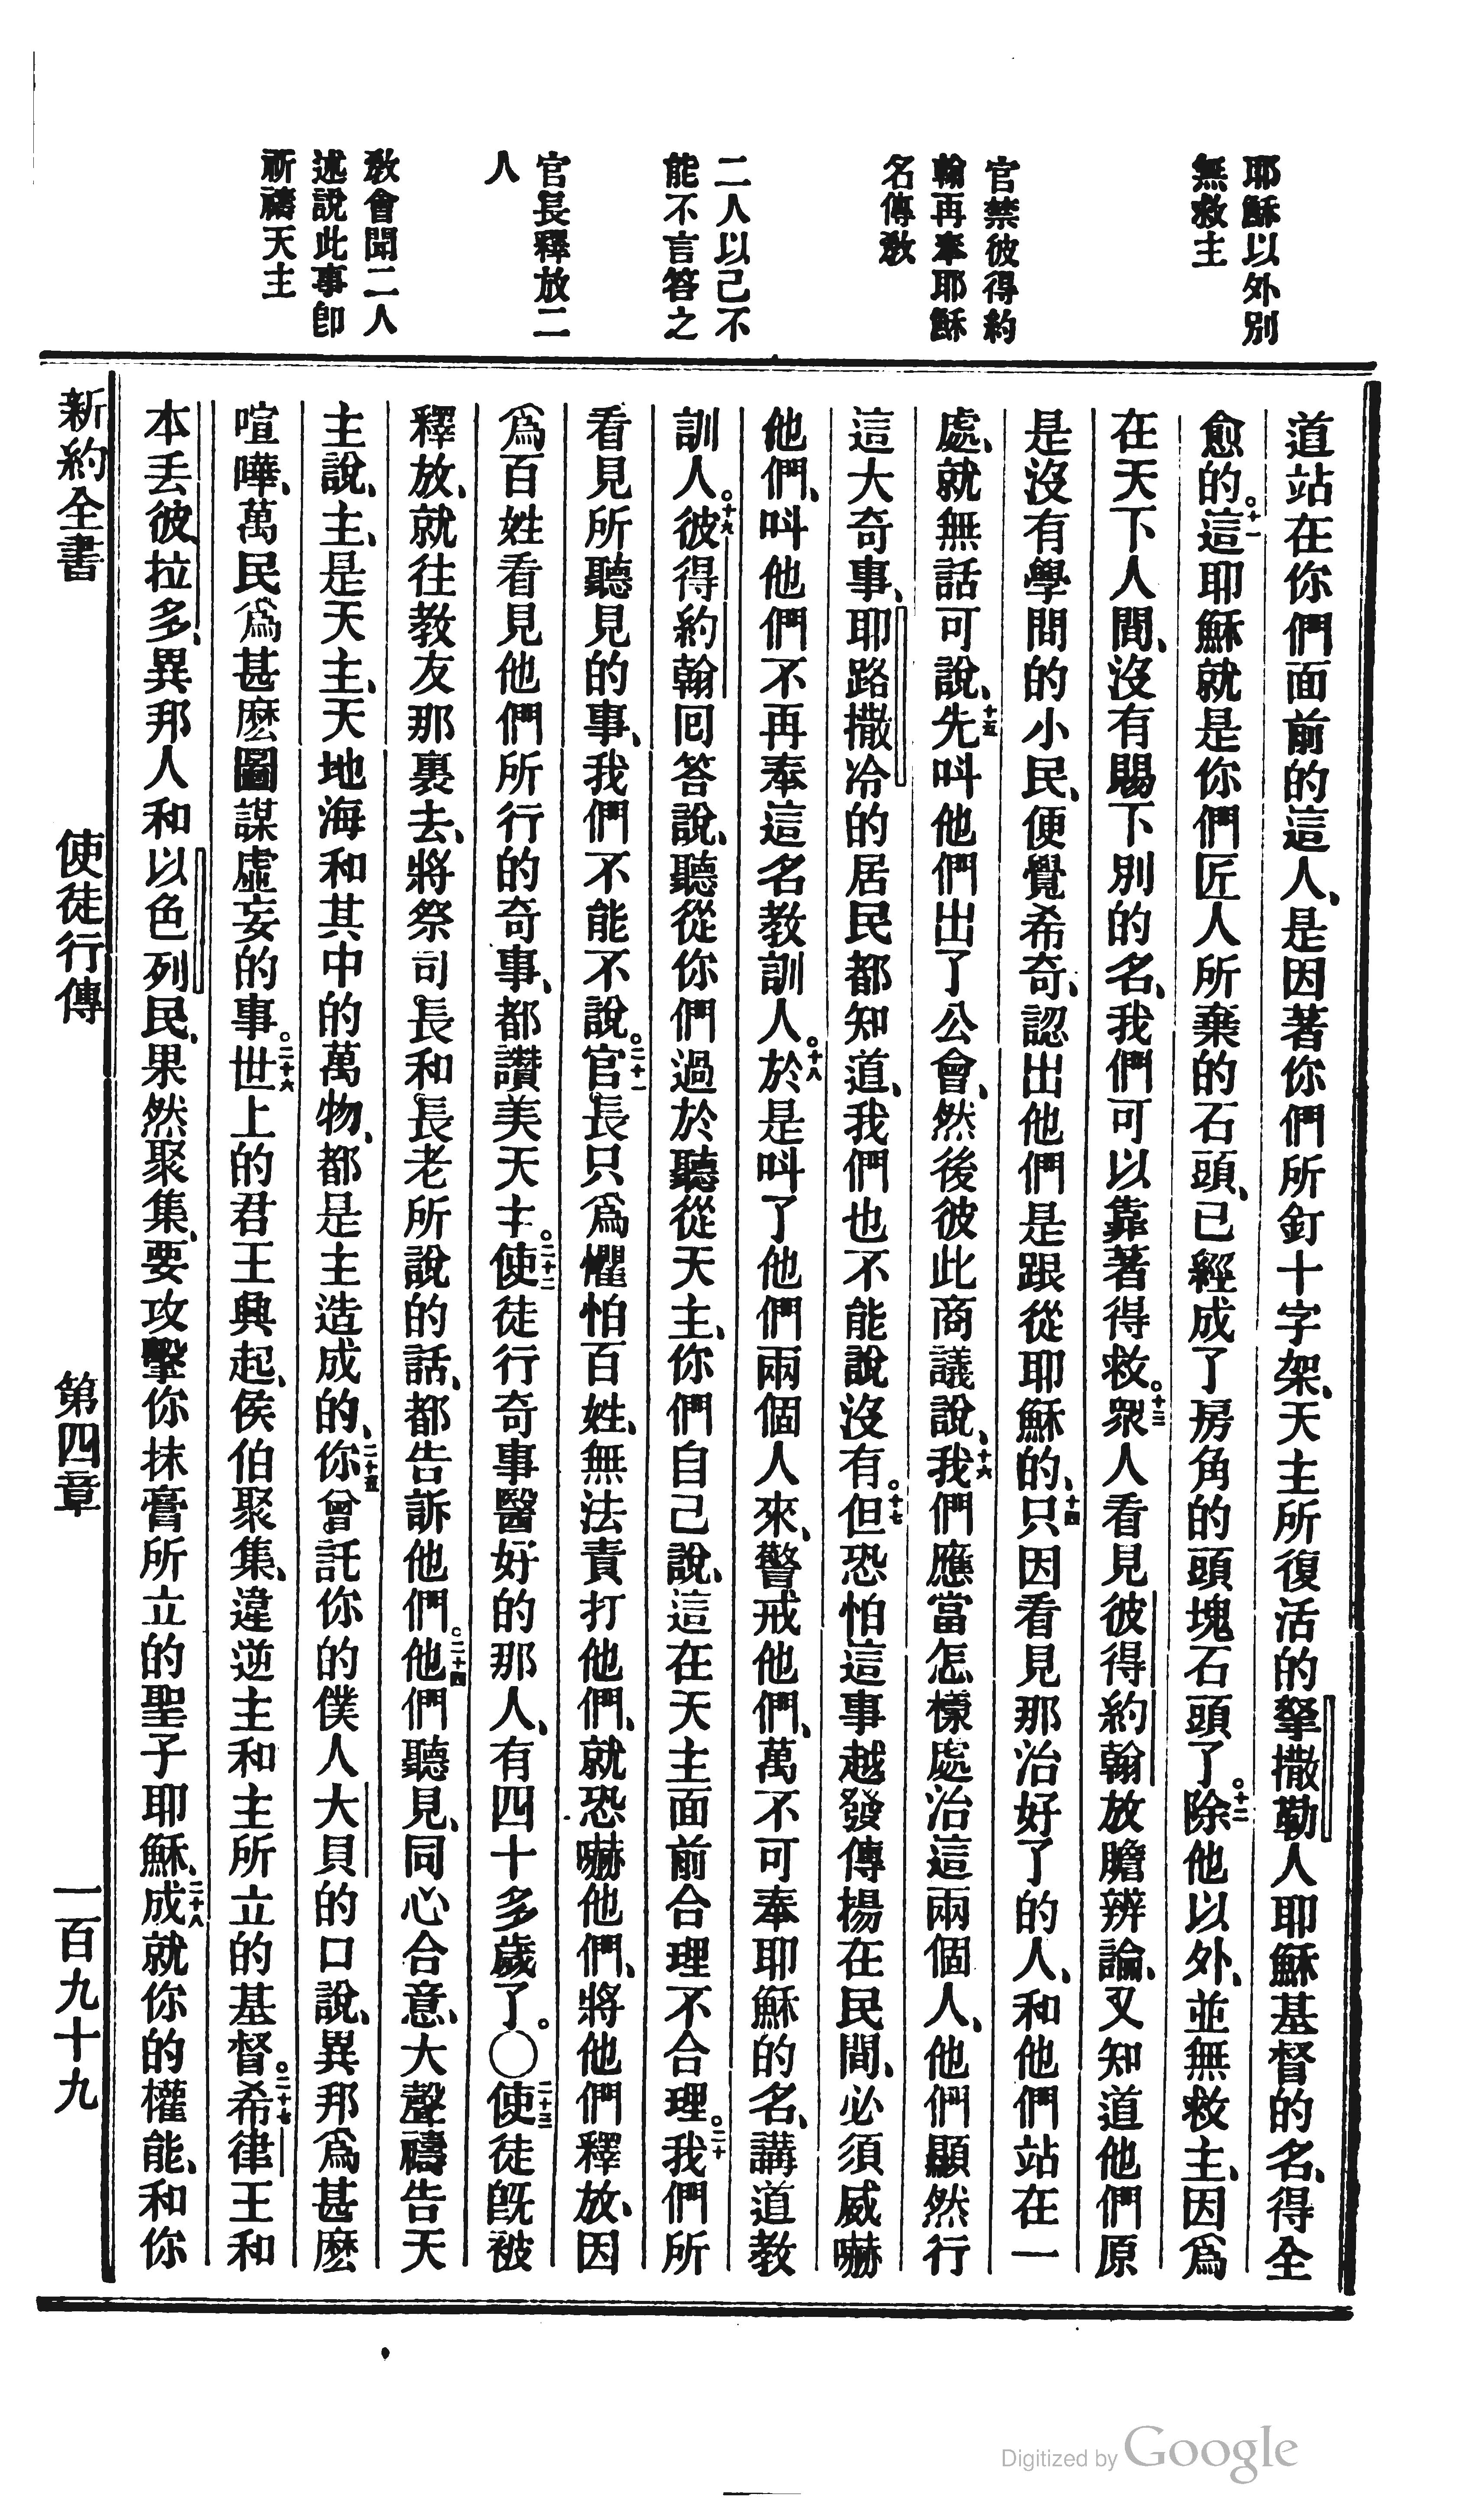 耶穌以外別
無救主
官禁彼得約
翰再奉耶穌
名傳教
二人以己不
能不言答之
官長釋放二
人
教會聞二人
述說此事卽
祈禱天主
道站在你們面前的這人、是因著你們所釘十字架、天主所復活的拏撒勒人耶穌基督的名、得全
愈的。十一這耶穌就是你們匠人所棄的石頭、已經成了房角的頭塊石頭了。十二除他以外、並無救主、因爲
在天下人間、沒有賜下別的名、我們可以靠著得救。十三衆人看見彼得約翰放膽辨論、又知道他們原
是沒有學問的小民、便覺希奇、認出他們是跟從耶穌的、十四只因看見那治好了的人、和他們站在一
處、就無話可說、十五先呌他們出了公會、然後彼此商議說、十六我們應當怎樣處治這兩個人、他們顯然行
這大奇事、耶路撒冷的居民都知道、我們也不能說沒有。十七但恐怕這事越發傳揚在民間、必須威嚇
他們、呌他們不再奉這名教訓人。十八於是呌了他們兩個人來、警戒他們、萬不可奉耶穌的名、講道教
訓人。十九彼得約翰回答說、聽從你們過於聽從天主、你們自己說、這在天主面前合理不合理。二十我們所
看見所聽見的事、我們不能不說。二十一官長只爲懼怕百姓、無法責打他們、就恐嚇他們、將他們釋放、因
爲百姓看見他們所行的奇事、都讚美天主。二十二使徒行奇事醫好的那人、有四十多歲了。〇二十三使徒旣被
釋放、就往教友那裏去、將祭司長和長老所說的話、都告訴他們。二十四他們聽見、同心合意、大聲禱告天
主說、主、是天主、天地海和其中的萬物、都是主造成的、二十五你曾託你的僕人大貝的口說、異邦爲甚麽
喧嘩、萬民爲甚麽圖謀虛妄的事。二十六世上的君王興起、侯伯聚集、違逆主和主所立的基督。二十七希律王和
本丟彼拉多、異邦人和以色列民、果然聚集、要攻擊你抹膏所立的聖子耶穌、二十八成就你的權能、和你
新約全書
使徒行傳
第四章
一百九十九
Digitized by Google